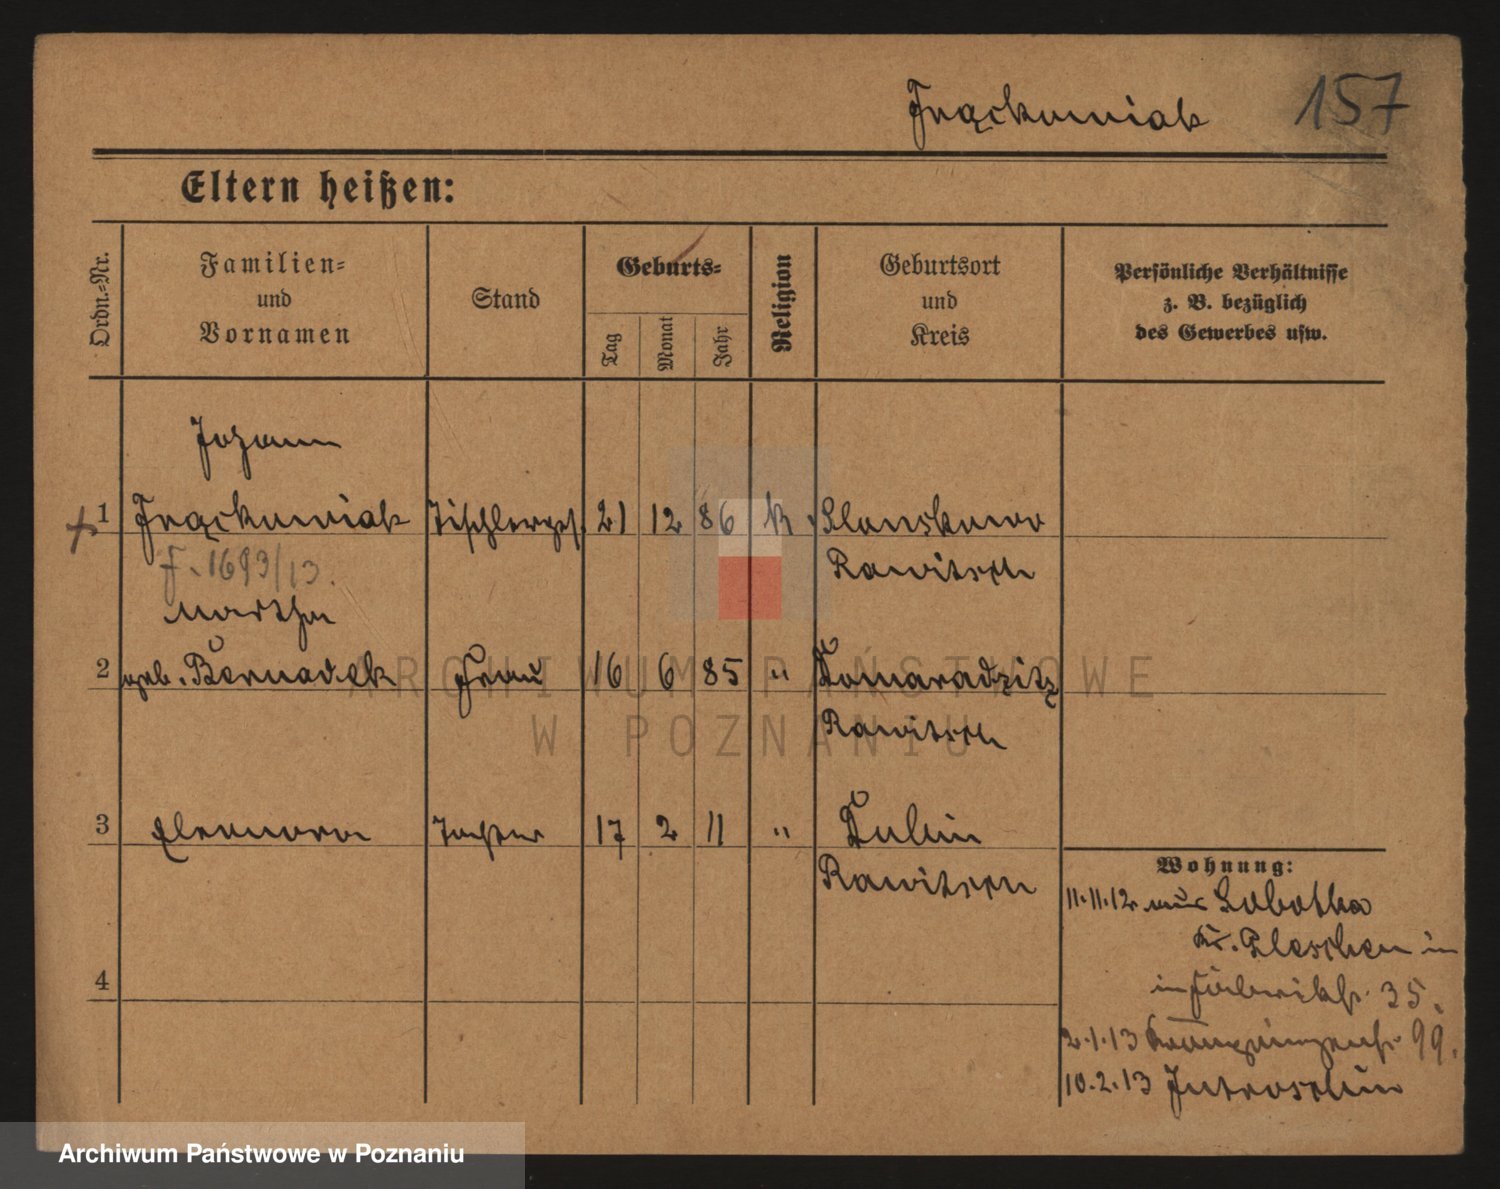 Frąckowiak 157
Eltern heißen:
Ordn.-Nr.
Familien-
und
Vornamen
Stand
Geburts-
Tag
Monat
Jahr
Religion
Geburtsort
und
Kreis
Persönliche Verhältnisse
z. B. bezüglich
des Gewerbes usw.
Johann
1 Frąckowiak Tischlerges. 21 12 86 k Slonskowo
F. 1693/13. Rawitsch
Martha
2 geb. Bernadek Frau 16 6 85 " Domaradzitz
Rawitsch
3 Eleonora Tochter 17 2 11 " Dubin
Rawitsch
4
Wohnung:
11.11.12 aus Sobotka
Kr. Pleschen in
in Fabrikstr. 35.
2.1.13 Kronprinzenstr. 99.
10.2.13 Jutroschin
ARCHIWUM PAŃSTWOWE
W POZNANIU
Archiwum Państwowe w Poznaniu